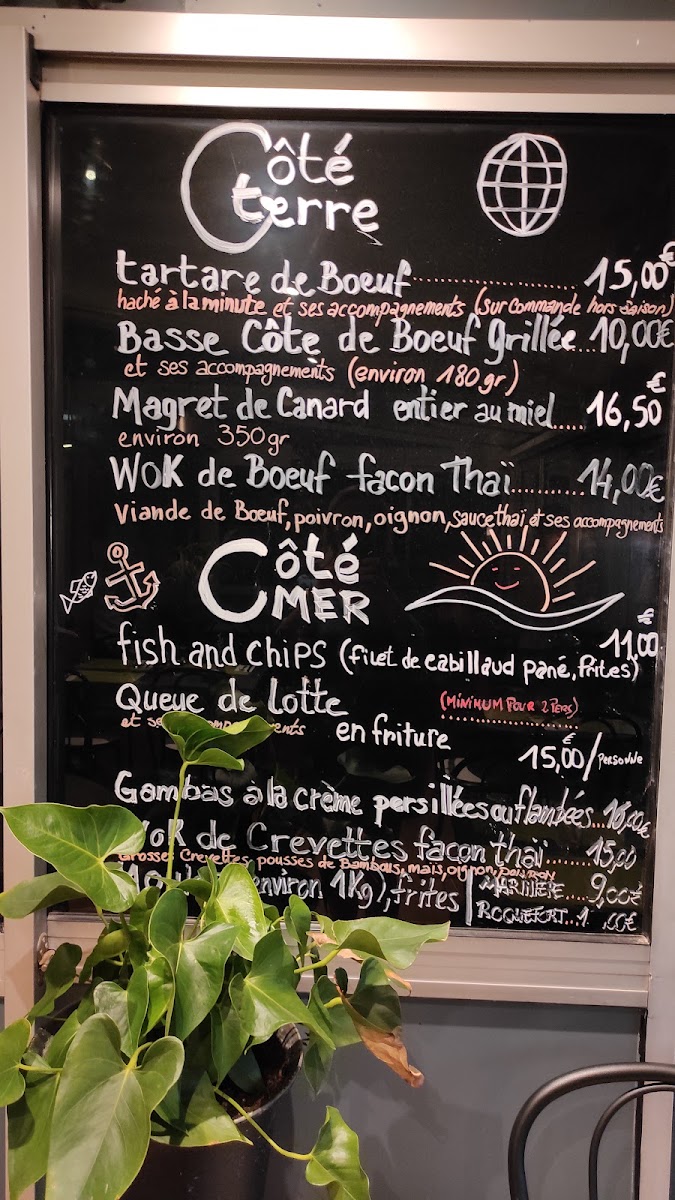 Côté
terre
tartare de Boeuf............ 15,00€
haché à la minute et ses accompagnements (sur commande hors saison)
Basse Côte de Boeuf grillée....10,00€
et ses accompagnements (environ 180gr)
Magret de Canard entier au miel..... 16,50€
environ 350gr
WOK de Boeuf facon Thaï..........14,00€
Viande de Boeuf, poivron, oignon, sauce thaï et ses accompagnements
Côté
MER
fish and chips (filet de cabillaud pané, frites) 11,00€
Queue de Lotte (MINIMUM POUR 2 PERS)
et en friture
15,00€/Personne
Gambas à la crème persillées ou flambées...16,00€
WoK de Crevettes façon thaï.......15,00
Grosses Crevettes, pousses de Bambous, maïs, oignon, poivron
(environ 1Kg), frites MARINIERE....9,00€
ROQUEFORT..